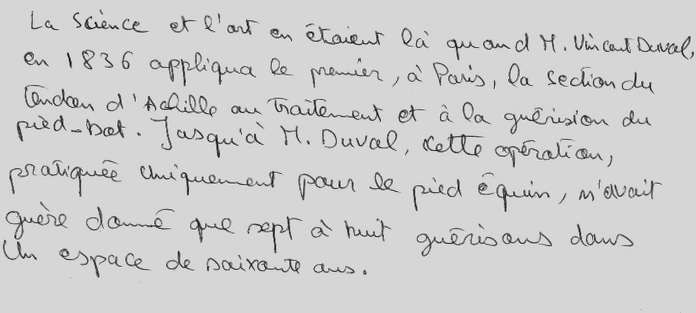 La Science et l'art en étaient là quand M. Vincent Duval,
en 1836 appliqua le premier, à Paris, la section du
tendon d'Achille au traitement et à la guérision du
pied-bot. Jusqu'à M. Duval, cette opération,
pratiquée uniquement pour le pied équin, n'avait
guère donné que sept à huit guérisons dans
un espace de soixante ans.